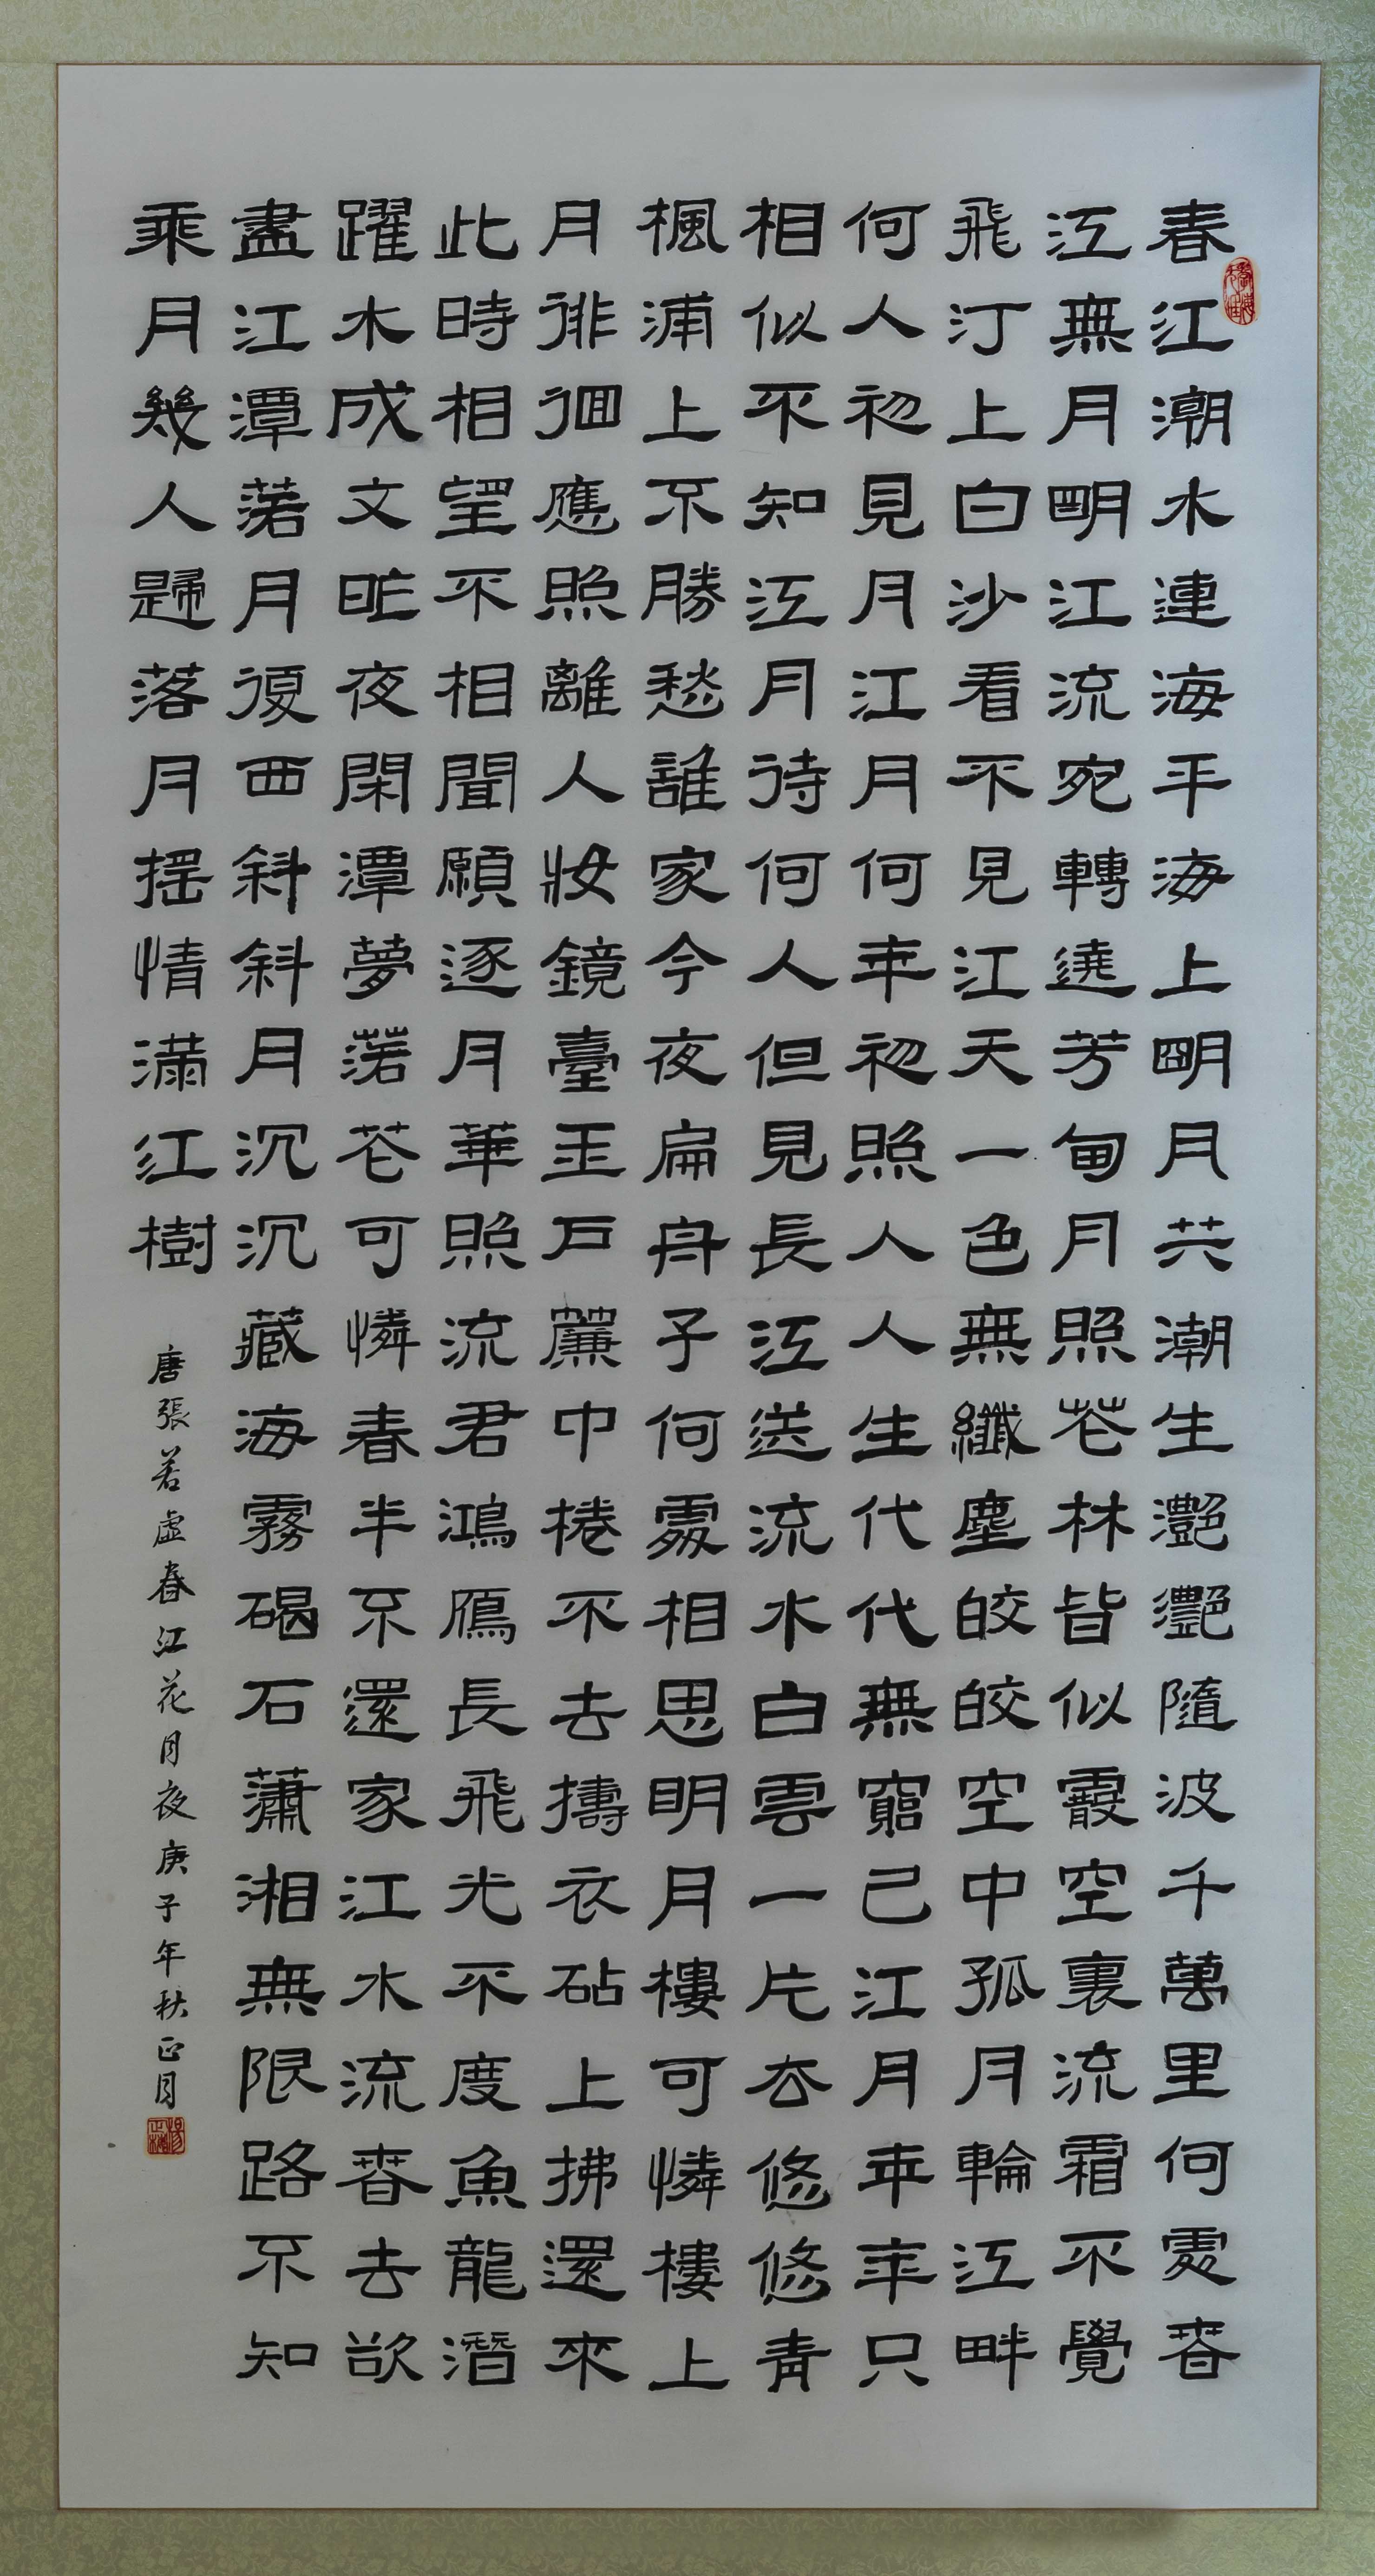 春江潮水連海平海上明月共潮生灩灩隨波千萬里何處春
江無月明江流宛轉遶芳甸月照花林皆似霰空裏流霜不覺
飛汀上白沙看不見江天一色無纖塵皎皎空中孤月輪江畔
何人初見月江月何年初照人人生代代無窮已江月年年只
相似不知江月待何人但見長江送流水白雲一片去悠悠青
楓浦上不勝愁誰家今夜扁舟子何處相思明月樓可憐樓上
月徘徊應照離人妝鏡臺玉戶簾中捲不去擣衣砧上拂還來
此時相望不相聞願逐月華照流君鴻雁長飛光不度魚龍潛
躍水成文昨夜閑潭夢落花可憐春半不還家江水流春去欲
盡江潭落月復西斜斜月沉沉藏海霧碣石瀟湘無限路不知
乘月幾人歸落月搖情滿江樹
唐張若虛春江花月夜庚子年秋正月